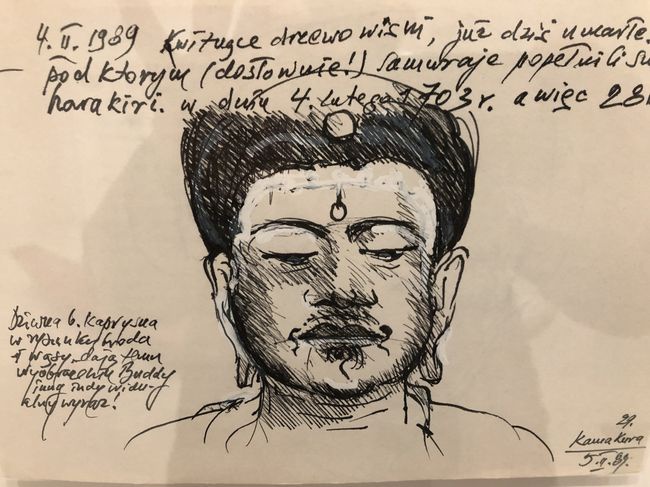 4. II. 1989 Kwitnące drzewo wiśni, już dziś umarłe,
pod którym (dosłownie!) samuraje popełnili
harakiri. w dniu 4. lutego 1703 r. a więc 28
Dziwna b. kapryśna
w rysunku broda
i wąsy, dają temu
wyobrażeniu Buddy
inny indywidu-
alny wyraz!
Kamakura
5. II. 89.